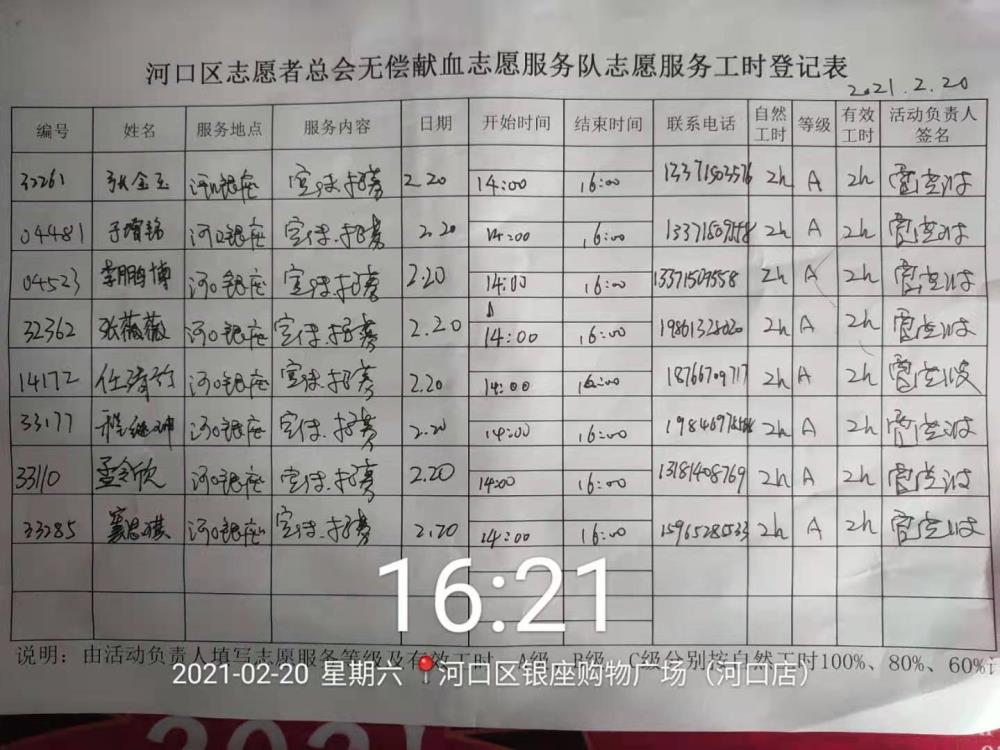 河口区志愿者总会无偿献血志愿服务队志愿服务工时登记表
2021.2.20
编号 姓名 服务地点 服务内容 日期 开始时间 结束时间 联系电话 自然工时 等级 有效工时 活动负责人签名
32261 张金玉 河口银座 宣传.招募 2.20 14:00 16:00 2h A 2h
04481 河口银座 宣传.招募 2.20 14:00 16:00 2h A 2h
04523 李鹏博 河口银座 宣传.招募 2.20 14:00 16:00 13371509558 2h A 2h
32362 张薇薇 河口银座 宣传.招募 2.20 14:00 16:00 19861328020 2h A 2h
14172 河口银座 宣传.招募 2.20 14:00 16:00 18766709717 2h A 2h
33177 河口银座 宣传.招募 2.20 14:00 16:00 2h A 2h
33110 孟令欣 河口银座 宣传.招募 2.20 14:00 16:00 13181408769 2h A 2h
33285 窦思琪 河口银座 宣传.招募 2.20 14:00 16:00 15965285533 2h A 2h
16:21
说明：由活动负责人填写志愿服务等级及有效工时，A级、B级、C级分别按自然工时100%、80%、60%计
2021-02-20 星期六 河口区银座购物广场（河口店）